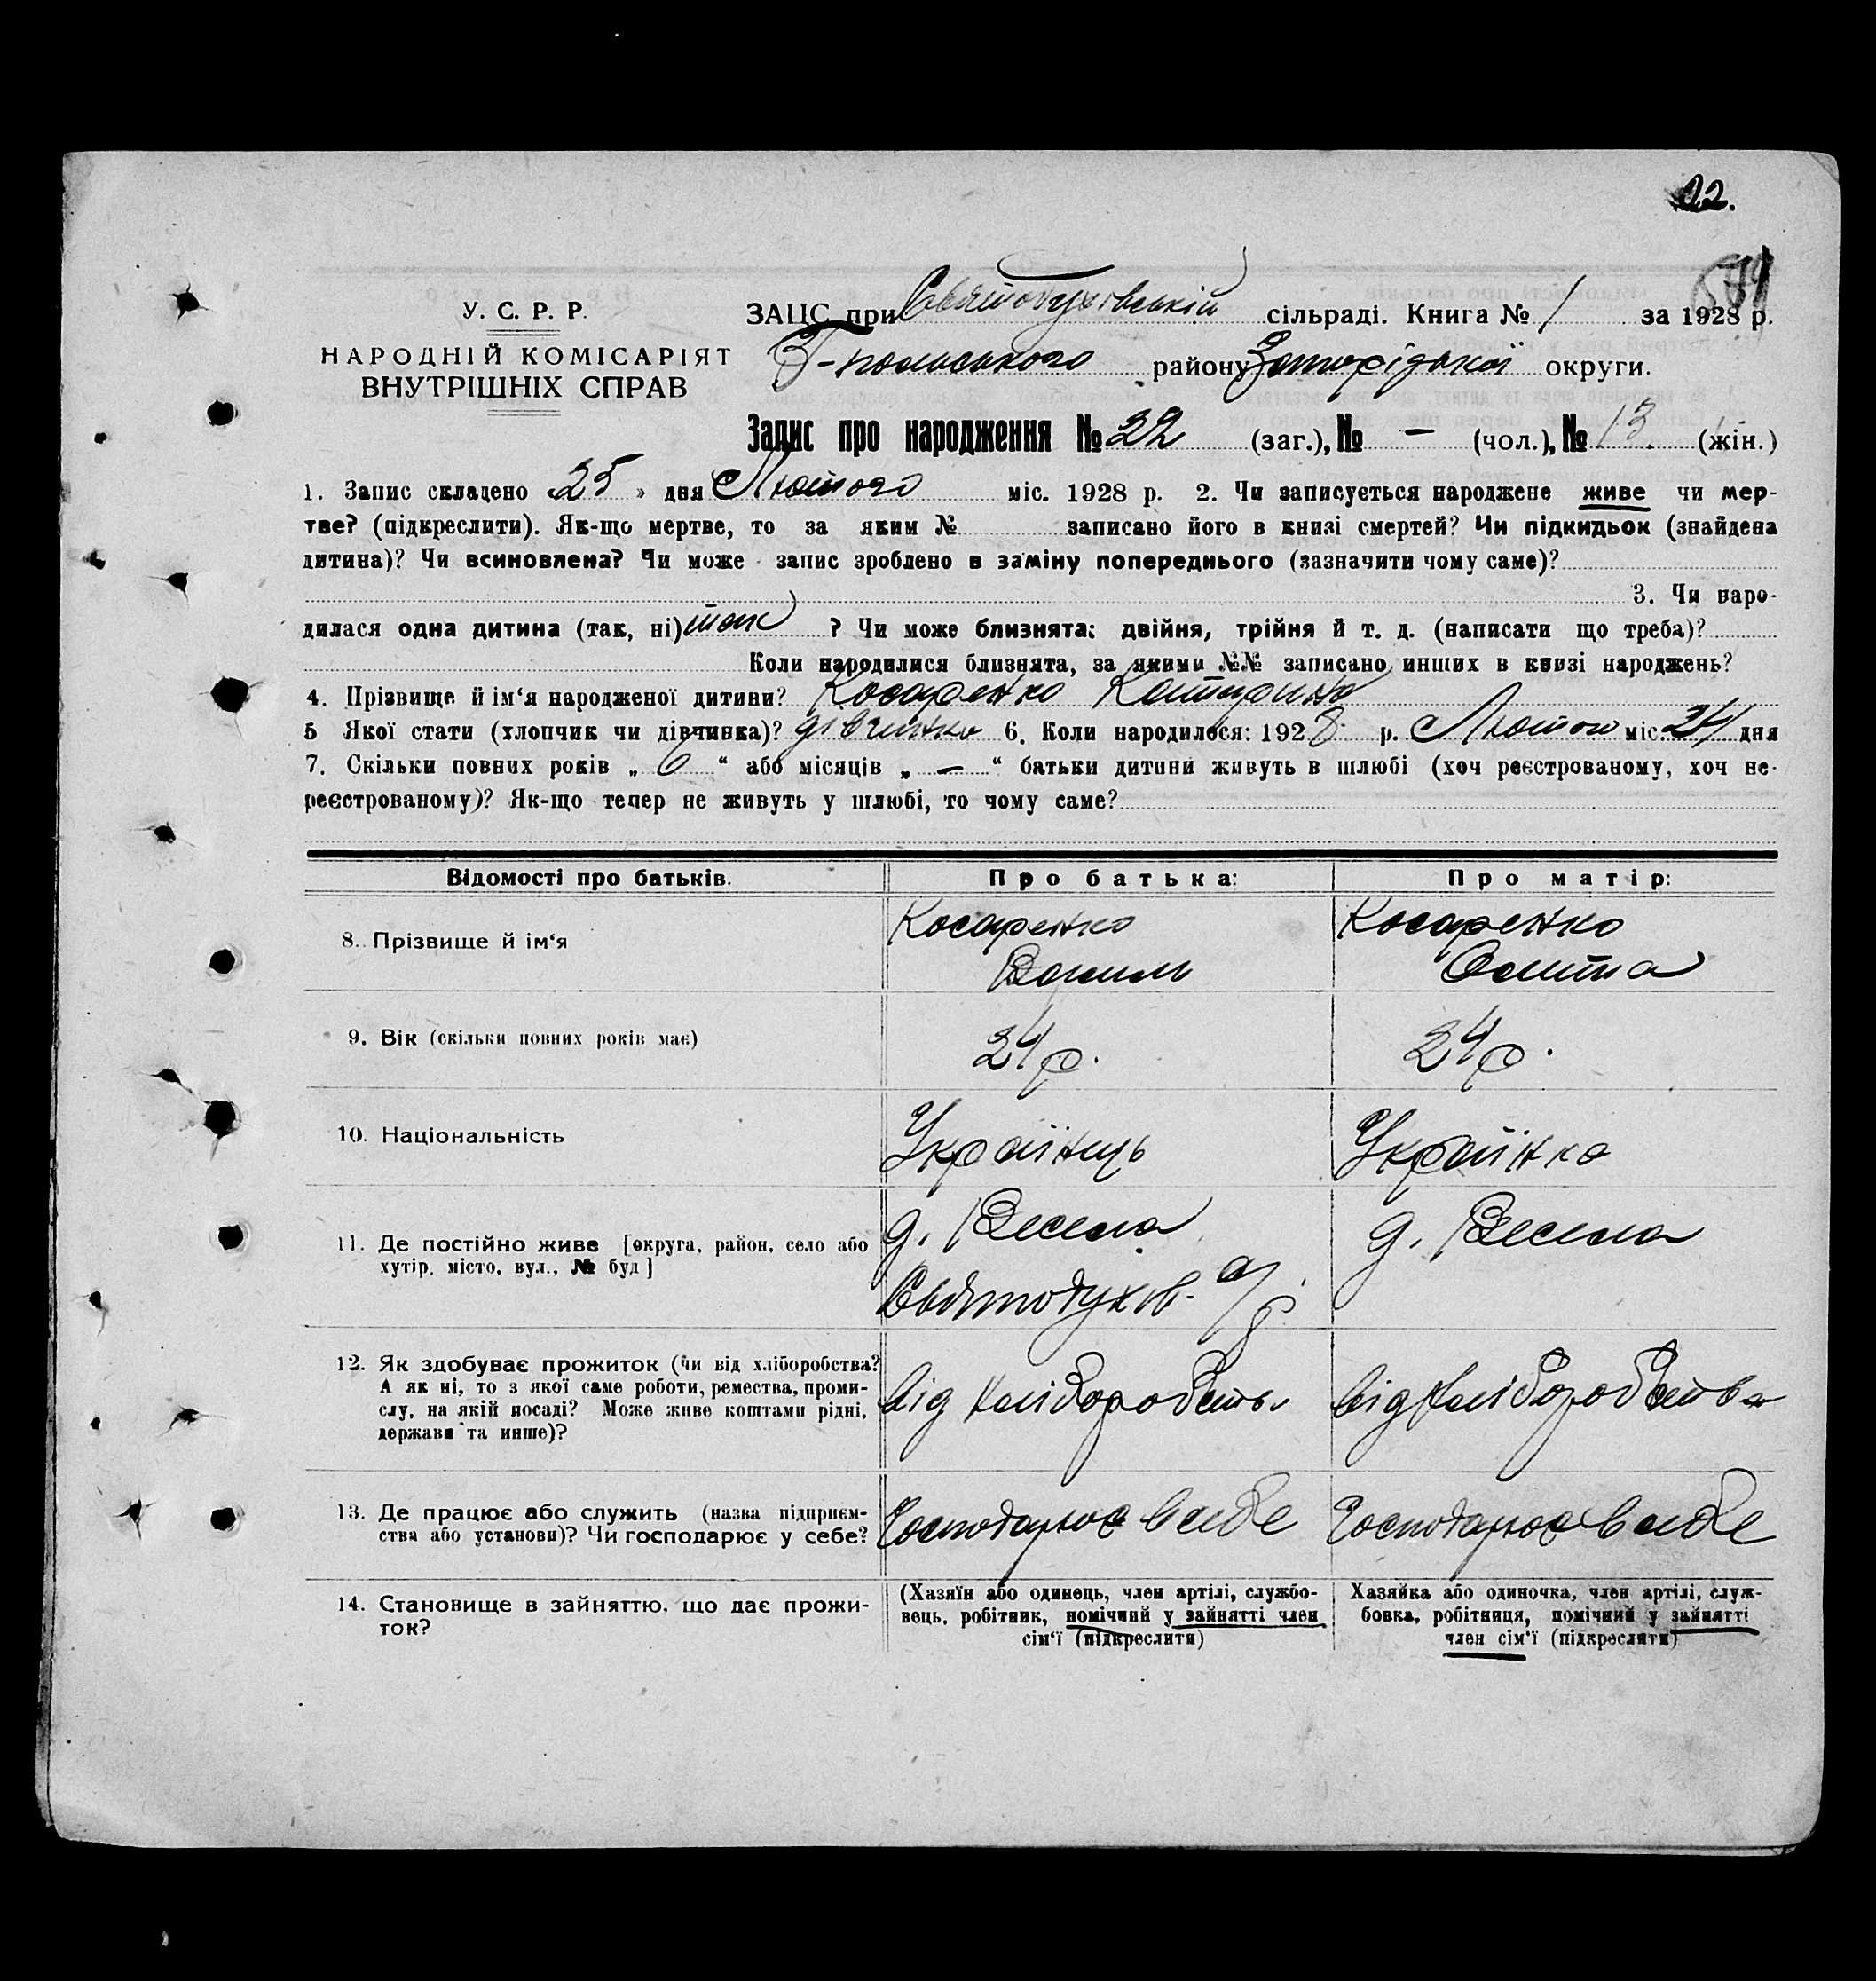 22.
У. С. Р. Р.
НАРОДНІЙ КОМІСАРІЯТ
ВНУТРІШНІХ СПРАВ
ЗАЦС при Святодухівській сільраді. Книга № 1 за 1928 р.
району Запорізької округи.
Запис про народження № 22 (заг.), № — (чол.), № 13 (жін.)
1. Запис складено 25 » дня Лютого міс. 1928 р. 2. Чи записується народжене живе чи мер-
тве? (підкреслити). Як-що мертве, то за яким № записано його в книзі смертей? Чи підкидьок (знайдена
дитина)? Чи всиновлена? Чи може запис зроблено в заміну попереднього (зазначити чому саме)?
3. Чи наро-
дилася одна дитина (так, ні) так ? Чи може близнята: двійня, трійня й т. д. (написати що треба)?
Коли народилися близнята, за якими №№ записано инших в книзі народжень?
4. Прізвище й ім‘я народженої дитини? Косаренко Катирина
5 Якої стати (хлопчик чи дівчинка)? дівчинка 6. Коли народилося: 1928 р. Лютого міс. 24 дня
7. Скільки повних років „ 6 “ або місяців „ — “ батьки дитини живуть в шлюбі (хоч реєстрованому, хоч не-
реєстрованому)? Як-що тепер не живуть у шлюбі, то чому саме?
Відомості про батьків. Про батька: Про матір:
8. Прізвище й ім‘я Косаренко Данило Косаренко
9. Вік (скільки повних років має) 24 р. 24 р.
10. Національність Українець Українка
11. Де постійно живе [округа, район, село або
хутір, місто, вул., № буд] д. Весела Святодухів. с/р. д. Весела
12. Як здобуває прожиток (чи від хліборобства?
А як ні, то з якої саме роботи, ремества, проми-
слу, на якій посаді? Може живе коштами рідні,
держави та инше)? від хліборобства від хліборобства
13. Де працює або служить (назва підприєм-
ства або установи)? Чи господарює у себе? Господарює в себе Господарює в себе
14. Становище в зайняттю, що дає прожи-
ток?
(Хазяїн або одинець, член артілі, службо-
вець, робітник, помічний у зайнятті член
сім‘ї (підкреслити)
Хазяйка або одиночка, член артілі, служ-
бовка, робітниця, помічний у зайнятті
член сім‘ї (підкреслити)